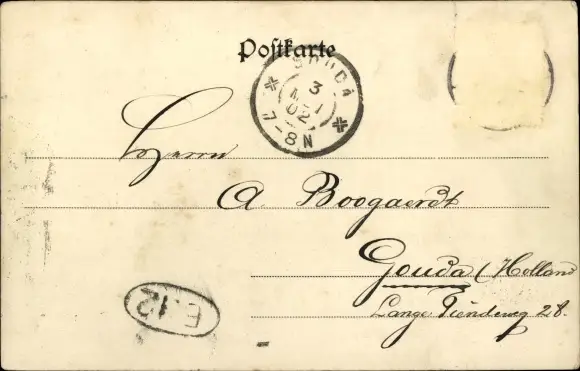 Postkarte
GOUDA
3
MEI
02
7-8N
Herrn
A Boogaerdt
Gouda (Holland
Lange Tiendeweg 28.
E.12